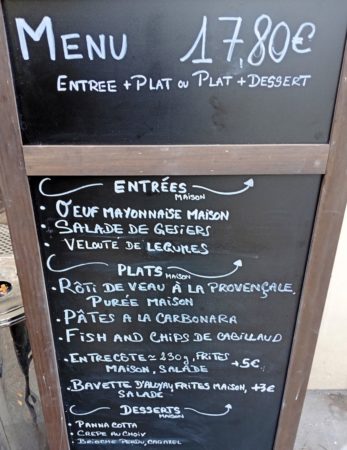 MENU 17,80€
ENTREE + PLAT OU PLAT + DESSERT
ENTRÉES
MAISON
• OEUF MAYONNAISE MAISON
• SALADE DE GESIERS
• VELOUTÉ DE LEGUMES
PLATS MAISON
• RÔTI DE VEAU À LA PROVENÇALE,
PURÉE MAISON
• PÂTES A LA CARBONARA
• FISH AND CHIPS DE CABILLAUD
• ENTRECÔTE ≃ 230g, FRITES
MAISON, SALADE +5€
• BAVETTE D'ALOYAU, FRITES MAISON, +3€
SALADE
DESSERTS
MAISON
• PANNA COTTA
• CREPE AU CHOIX
• BRIOCHE PERDU,